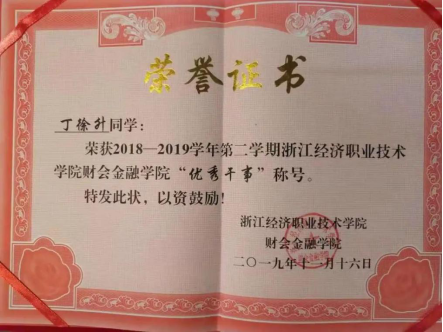 荣誉证书
丁徐升同学：
荣获2018—2019学年第二学期浙江经济职业技术
学院财会金融学院“优秀干事”称号。
特发此状，以资鼓励！
浙江经济职业技术学院
财会金融学院
二〇一九年十一月十六日